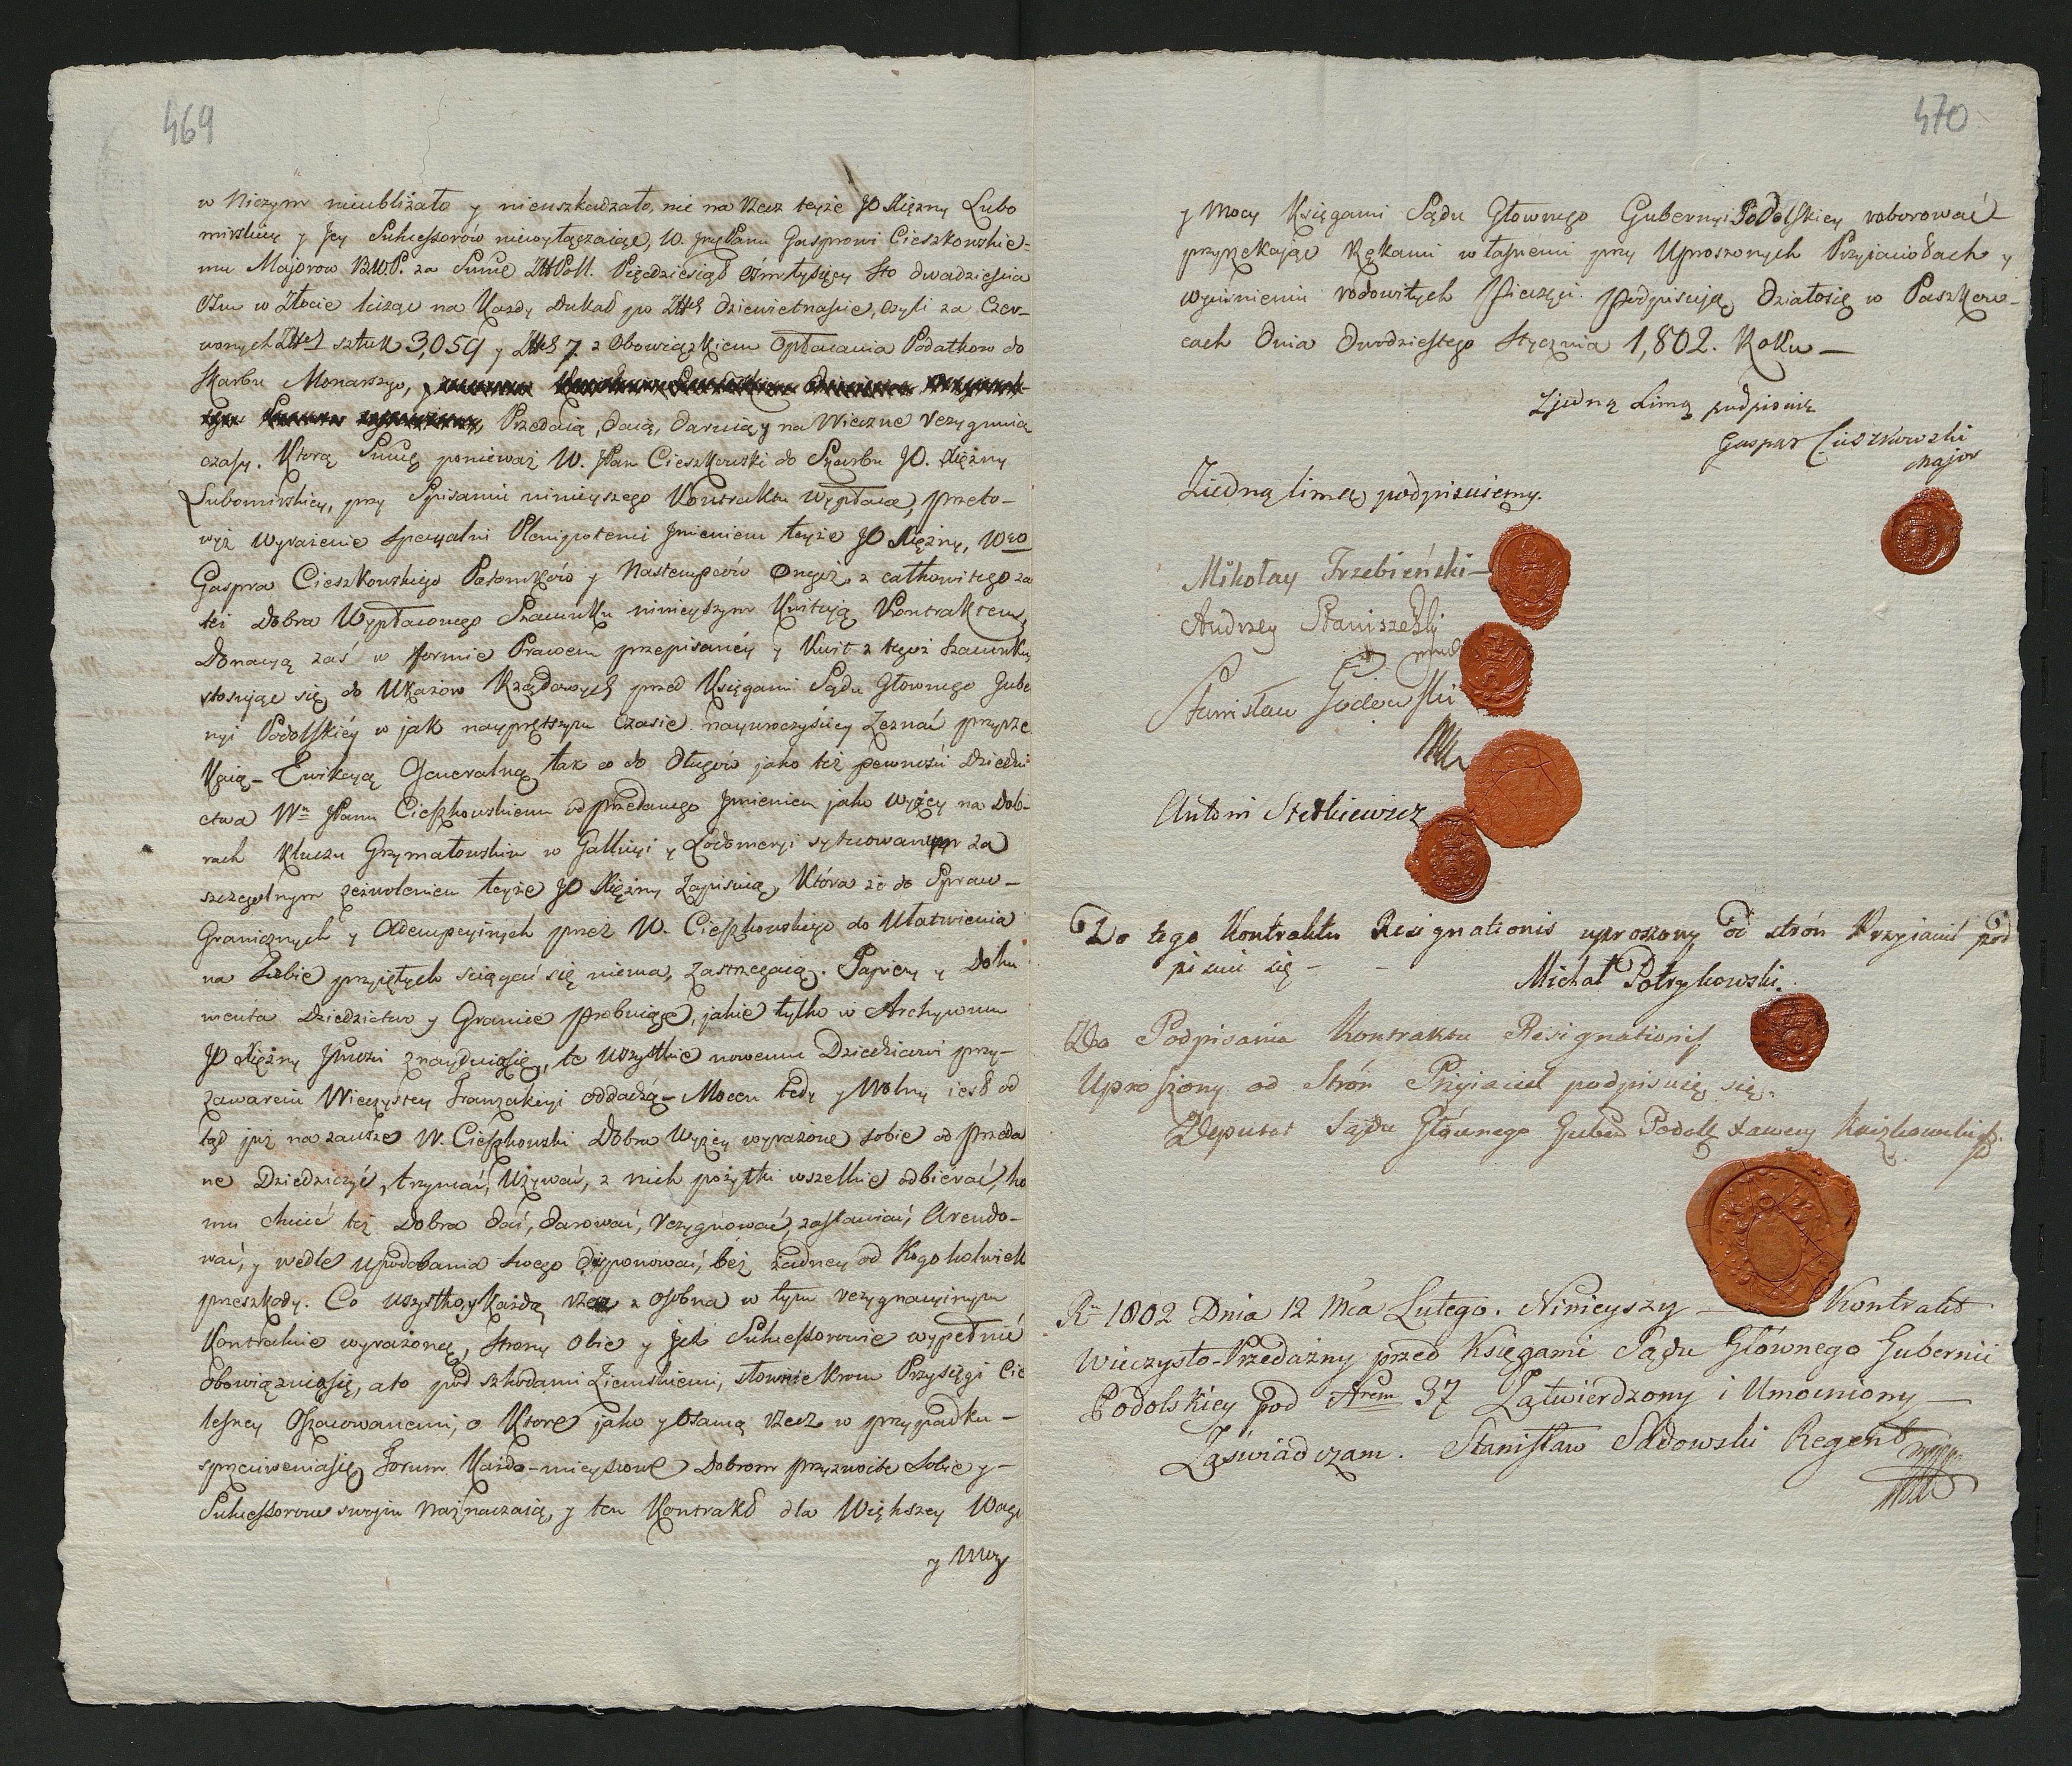 469
w niczym nieubliżało y nieuszkadzało, nic na rzecz teyże JO Xiężny Lubo
mirskiey y Jey Sukcessorów niewyłączaiąc, W. Jmć Panu Gasprowi Cieszkowskie-
mu Majorowi B.W.P. za Summę Złł Poll. Pięćdziesiąt ośm tysięcy sto dwadzieścia
ośm w Złocie licząc na Każdy Dukat po Złł dziewietnaście, czyli za Czer-
wonych Złł sztuk 3,059 y Złł 7. z Obowiązkiem Opłacania Podatkow do
Skarbu Monarszego,
Przedaią, daią, daruią y na Wieczne rezygnuią
czasy. Ktorą Summę ponieważ W. JPan Cieszkowski do Skarbu JO. Xiężny
Lubomirskiey, przy Spisaniu ninieyszego Kontraktu wypłacił, przeto-
wyż wyrażenie specyalni Plenipotenci Jmieniem teyże JO Xiężny, Wgo
Gaspra Cieszkowskiego Potomków y Nastempców Onegoż, z całkowitego za
też Dobra Wypłaconego Szacunku ninieyszym Kwitują Kontraktem,
Donacyą zaś w formie Prawem przepisanéy y Kwit z tegoż szacunku,
stosując się do Ukazow Rządowych przed Księgami Sądu Głownego Gube
rnyi Podolskiéy w jak nayprętszym czasie nayuroczyściey Zeznać przyrze
kaią - Ewikcyą Generalną tak co do Długów jako też pewności Dziedzi
ctwa Wu JPanu Cieszkowskiemu od przedanego Jmieniem jako wyżey na Dob-
rach Klucza Grzymałowskim w Gallicyi y Lodomeryi sytuowanym za
szczegulnym zezwoleniem teyże JO Xiężny Zapisuią, Która że do Spraw-
Granicznych y Ademcyinych przez W. Cieszkowskiego do Ułatwienia
na Siebie przyiętych sciągać się niema, zastrzegaią. Papiery y Doku
menta Dziedzictwo y Granice probuiące, jakie tylko w Archywum
JO Xiężny Jmości znayduiąsię, te wszystkie nowemu Dziedzicowi przy-
zawarciu Wieczystey Tranzakcyi oddadzą - Mocen tedy y Wolny iest od
tąd już na zawsze W. Cieszkowski Dobra Wyżey wyrażone sobie od przeda
ne Dziedziczyć, trzymać, Używać, z nich pożytki wszelkie odbierać, ko
mu chcieć też Dobra dać, darować, rezygnować, zastawiać, Arendo-
wać, y wedle upodobania swego disponować, beż żadney od Kogokolwiek
przeszkody. Co wszystko, y każdą rzecz z osobna w tym rezygnacyinym
Kontrakcie wyrażoną, strony obie y Jch Sukcessorowie wypełnić
obowiązuiąsię, a to pod szkodami Ziemskiemi, słownie krom Przysięgi Cie
lesney Oszacowanemi, o Które jako y o samą rzecz w przypadku-
sprzeciweniasię Forum Każdo-mieyscowe Dobrom przyzwoite Sobie y-
Sukcessorom swoim naznaczaią, y ten Kontrakt dla Większey Wagi
y Mocy
470
y Mocy Księgami Sądu Głownego Gubernyi Podolskiey roborować-
przyrzekając Rękami własnemi przy Uproszonych Przyiaciołach y
wyciśnieniu rodowitych Pieczęci podpisują Działosię w Paszkow-
cach Dnia Dwudziestego Stycznia 1,802. Roku-
Zjedną Limą podpisuie
Gaspar Cieszkowski
Major
Ziedną limą podpisuiemy.
Mikołay Trzebieński-
Andrzey Staniszewski
Stanisław Godlewski
Antoni Stetkiewicz
Do tego Kontraktu Resignationis uproszony od strón Przyiaciel pod
pisuie się - -
Michał Potrykowski.
Do Podpisania Kontraktu Resignationis
Uproszony od Strón Przyiaciel podpisuię się.
Deputat Sądu Głównego Guber Podolz Xawery Kaczkowski
Ru 1802 Dnia 12 Mca Lutego. Ninieyszy - Kontrakt
Wieczysto-Przedażny przed Księgami Sądu Głównego Gubernii
Podolskiéy pod Nrem 37 Zatwierdzony i Umocniony-
Zaświadczam. Stanisław Sadowski Regent